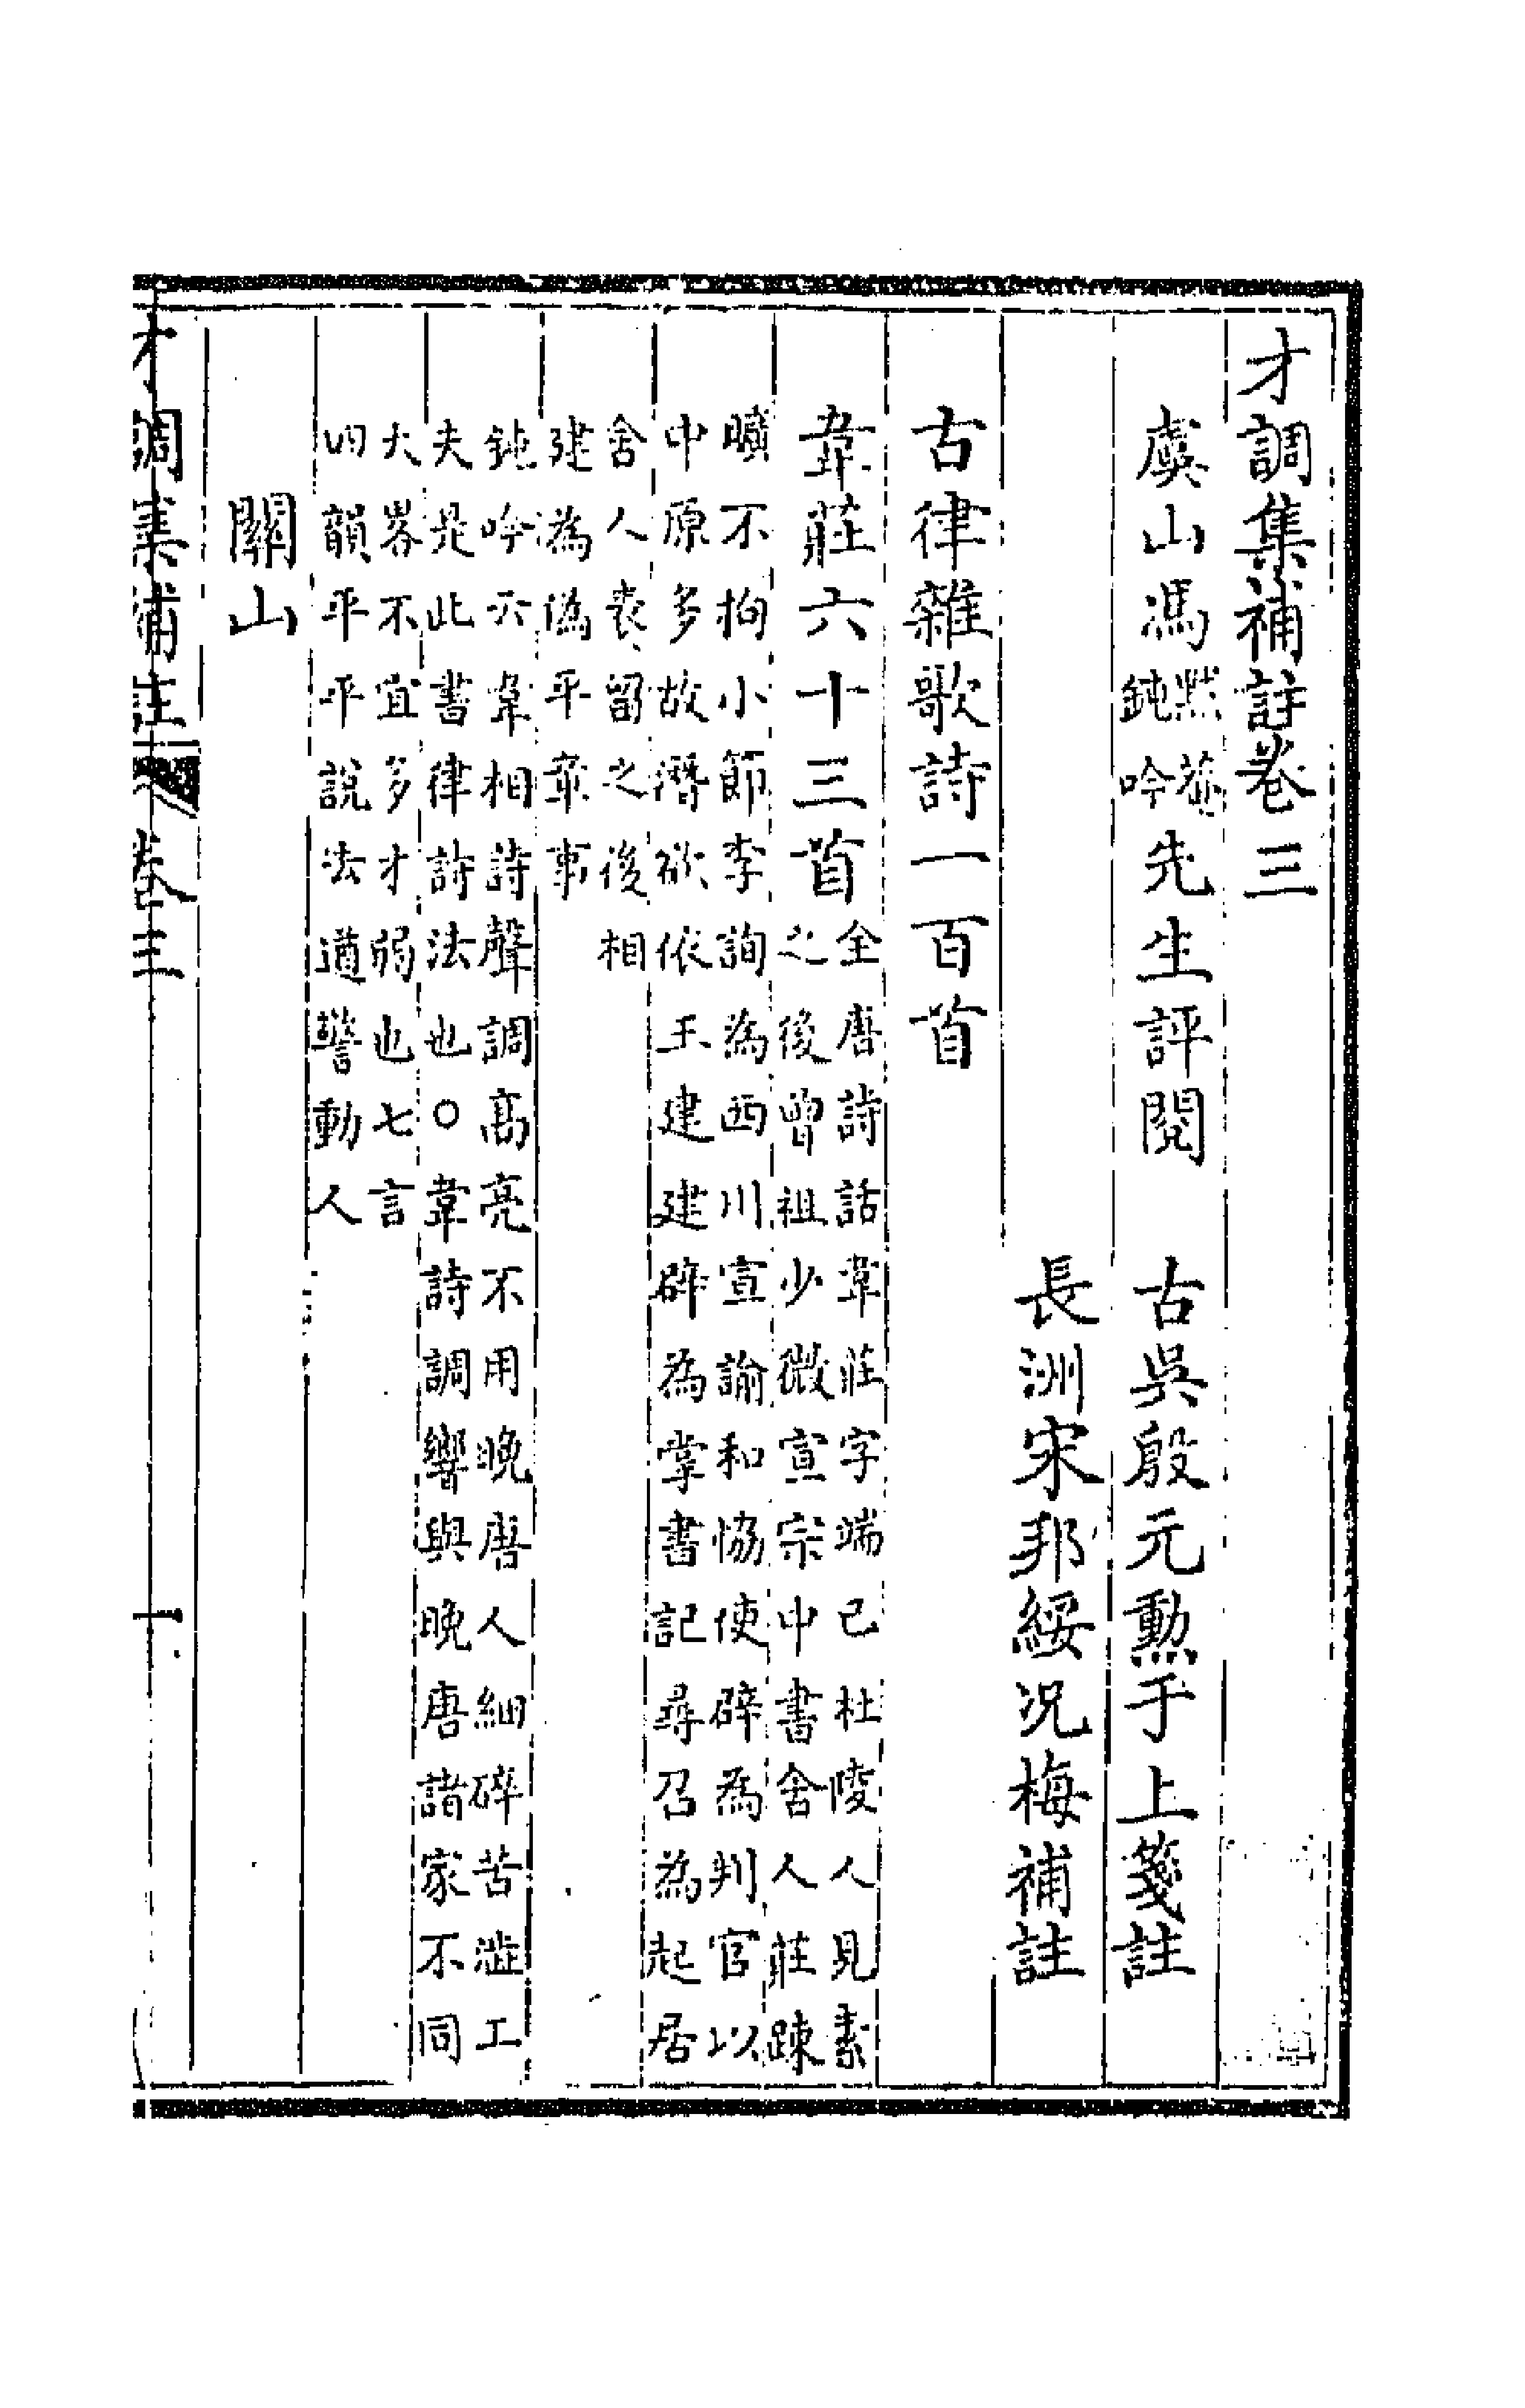 才調集補註卷三
虞山馮默菴鈍吟先生評閱　古吳殷元勳于上箋註
長洲宋邦綏況梅補註
古律雜歌詩一百首
韋莊六十三首全唐詩話韋莊字端己杜陵人見素
之後曾祖少微宣宗中書舍人莊疎
曠不拘小節李詢為西川宣諭和協使辟為判官以
中原多故潛欲依王建建辟為掌書記尋召為起居
舍人表留之後相
建為偽平章事
鈍吟云韋相詩聲調高亮不用晚唐人細碎苦澁工
夫是此書律詩法也○韋詩調響與晚唐諸家不同
大畧不宜多才弱也七言
四韻平平說去遒警動人
關山
才調集補註　卷三　一